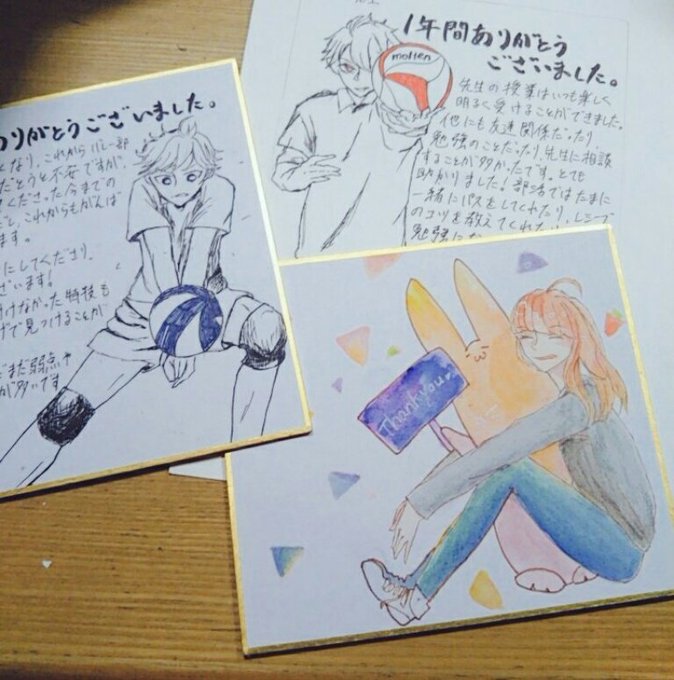 ありがとうございました。
となり、これからバレー部
だろうと不安ですが、
くださった今までの
これからもがんば
ます。
にしてくださり、
ざいます!
けなかった特技も
げで見つけることが
まだ弱点や
が多いです
1年間ありがとう
ございました。
molten
先生の授業はいつも楽しく
明るく受けることができました。
他にも友達関係だったり、
勉強のことだったり、先生に相談
することが多かったです。とても
助かりました!部活ではたまに
一緒にパスをしてくれたり、レシーブ
のコツを教えてくれたり
勉強に
Thankyou